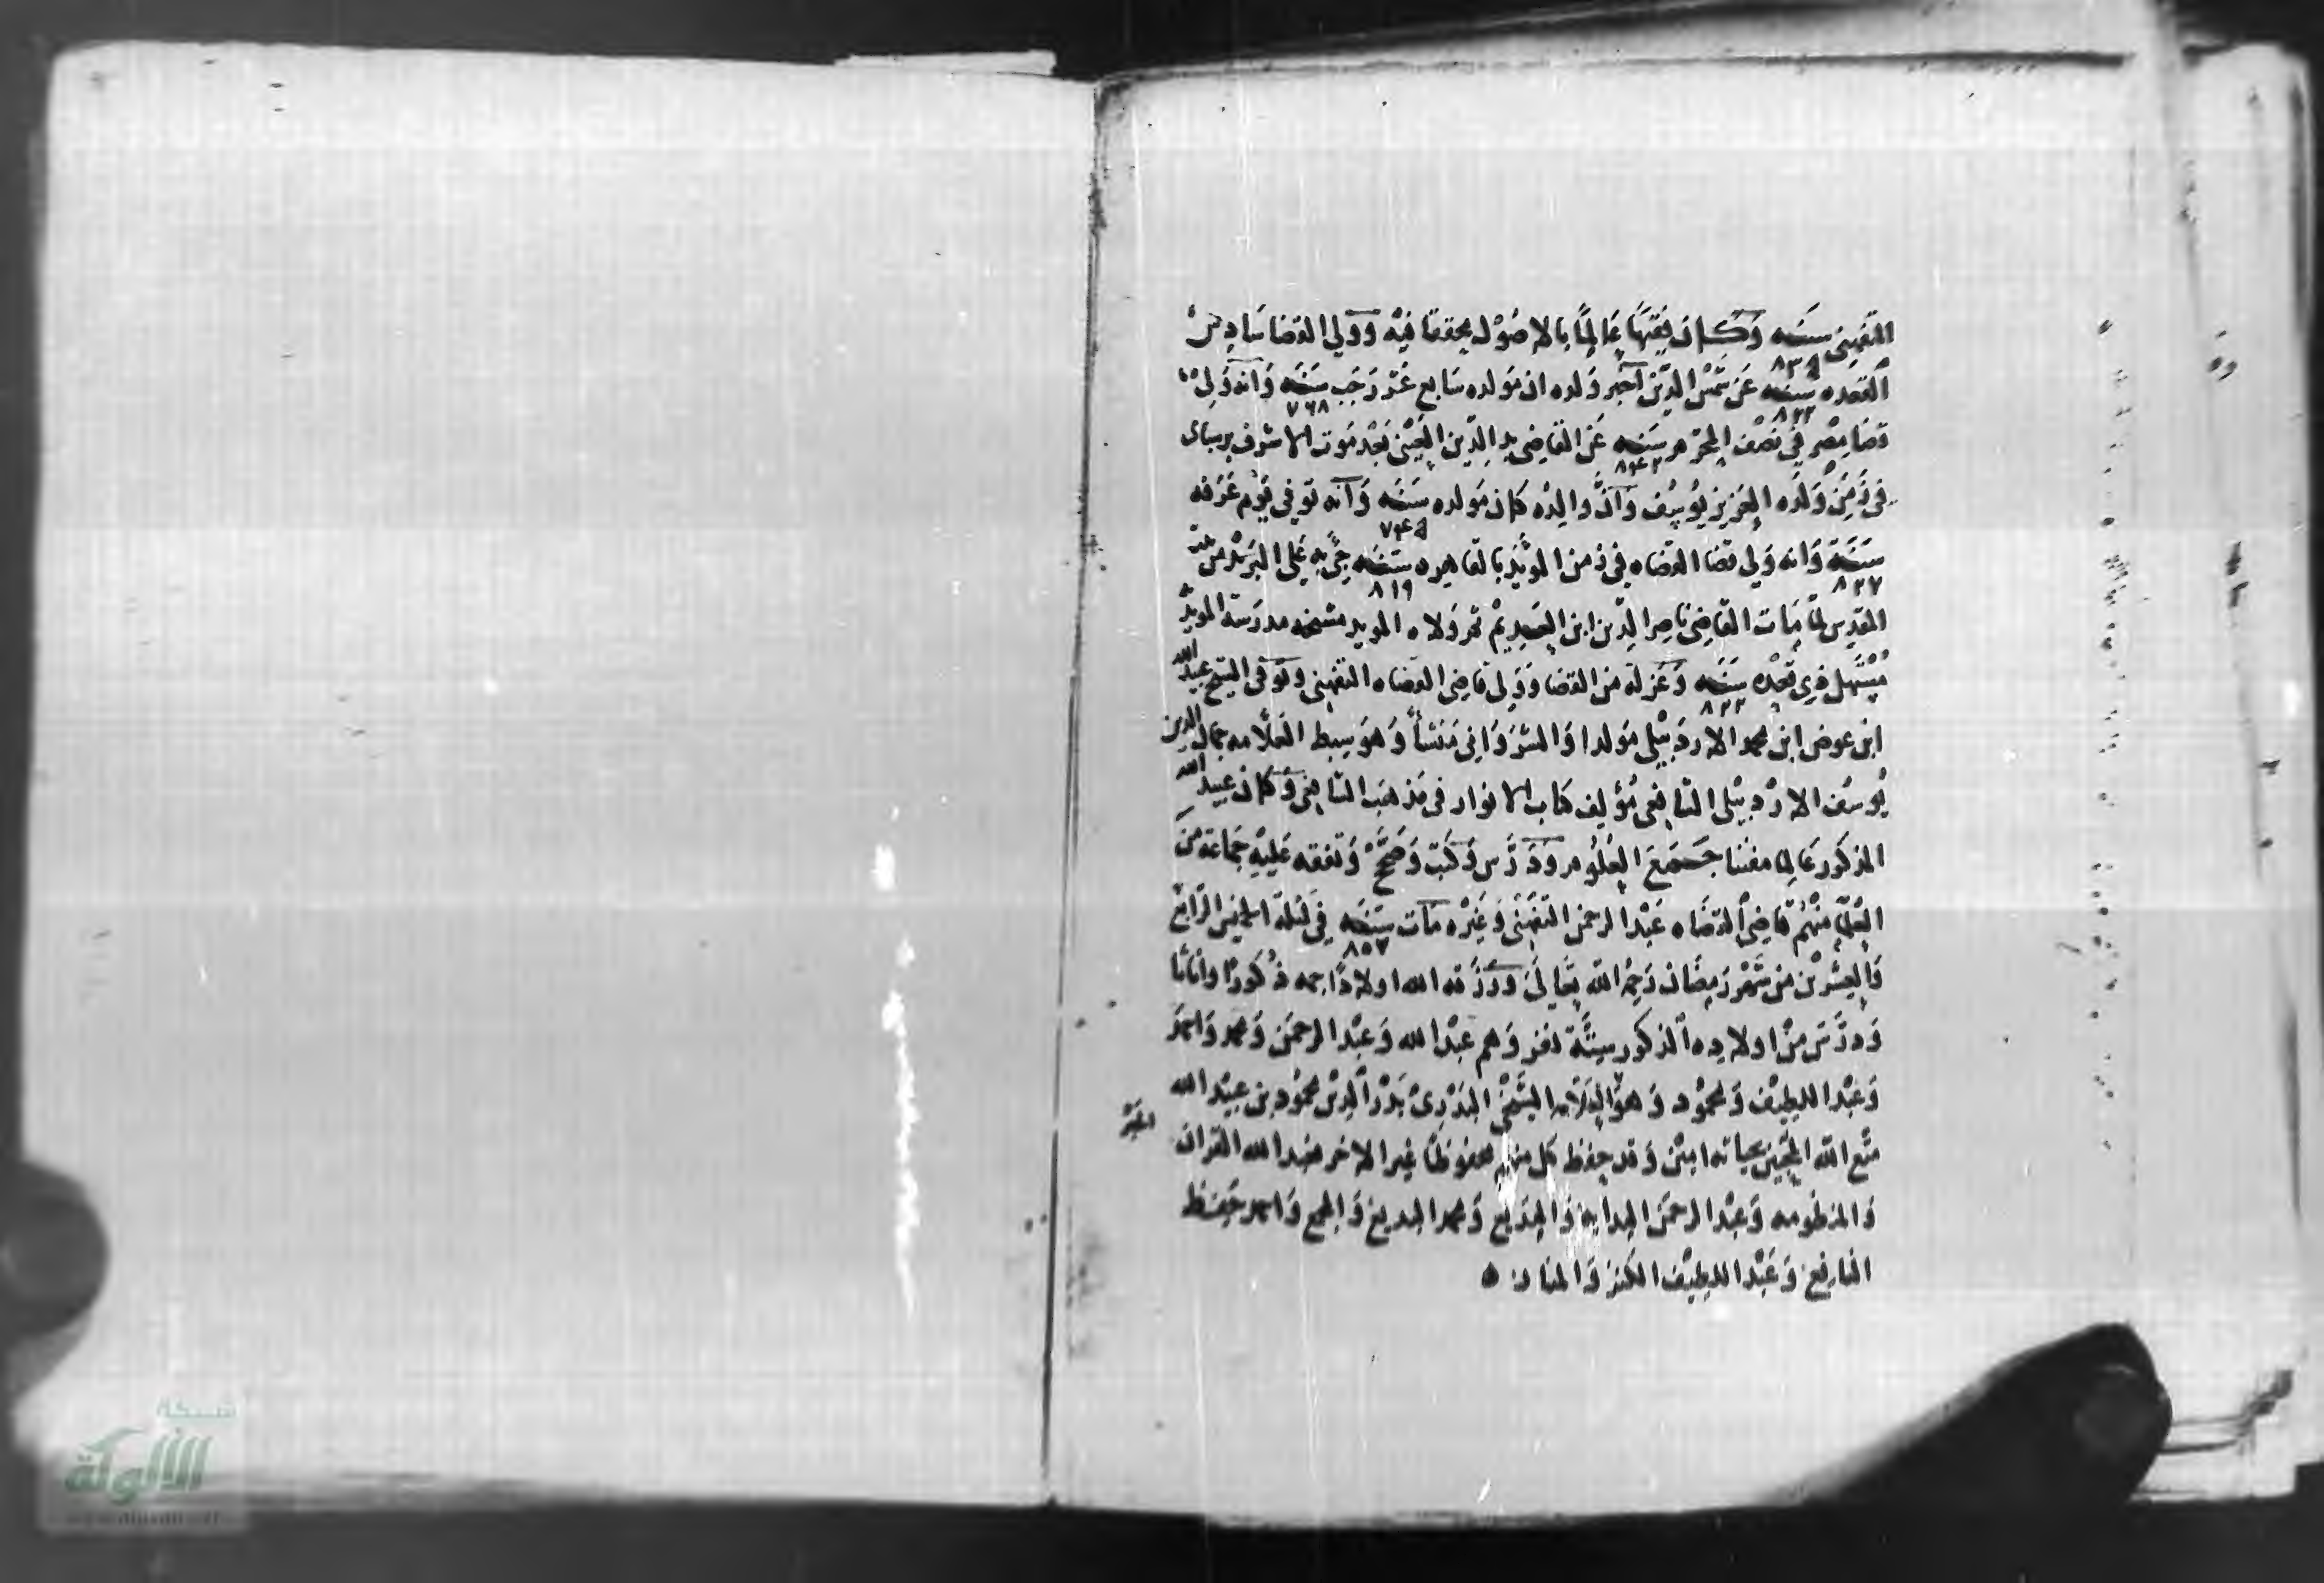 التفهني سنه ٨٣٥ وكان فقيها عالما بالاصول محققا فيه وولي القضا سادس
القعده سنه ٨٢٢ عن شمس الدين اخبر ولده ان مولده سابع عشر رجب سنه ٧٦٨ وانه ولي
قضا مصر في نصف المحرم سنه ٨٤٢ عن القاضي بدر الدين العيني بعد موت الاشرف برسباى
في زمن ولده العزيز يوسف وان والده كان مولده سنه ٧٤٥ وانه توفي يوم عرفه
سنة ٨٢٧ وانه ولي قضا القضاه في زمن المؤيد بالقاهره سنه ٨١٩ جئ به على البريد من
القدس لما مات القاضي ناصر الدين ابن العديم ثم ولاه المويد مشيخه مدرسة المويد
مستهل ذي قعده سنه ٨٢٢ وعزله من القضا وولي قاضي القضاه التفهني وتوفي الشيخ عبيد الله
ابن عوض ابن محمد الاردبيلي مولدا والشرواني منشأ وهو سبط العلامه جمال الدين
يوسف الاردبيلي الشافعي مؤلف كتاب الانوار في مذهب الشافعي وكان عبيد الله
المذكور عالما مفننا جمع العلوم ودرس وكتب وصحح وتفقه عليه جماعة من
العلما منهم قاضي القضاه عبد الرحمن التفهني وغيره مات سنه ٨٥٧ في ليلة الخميس الرابع
والعشرين من شهر رمضان رحمه الله تعالى ورزقه الله اولادا جمه ذكورا واناثا
ودرس من اولاده الذكور ستة نفر وهم عبد الله وعبد الرحمن ومحمد واحمد
وعبد اللطيف ومحمود وهو العلامه الشيخ البدري بدر الدين محمود بن عبيد الله
متع الله المحبين بحياته امين وقد حفظ كل منهم محفوظا غير الاخر فعبد الله القران
والمنظومه وعبد الرحمن الهدايه والبديع ومحمد البديع والمجمع واحمد حفظ
النافع وعبد اللطيف الكنز والمنار ه
شبكة
الألوكة